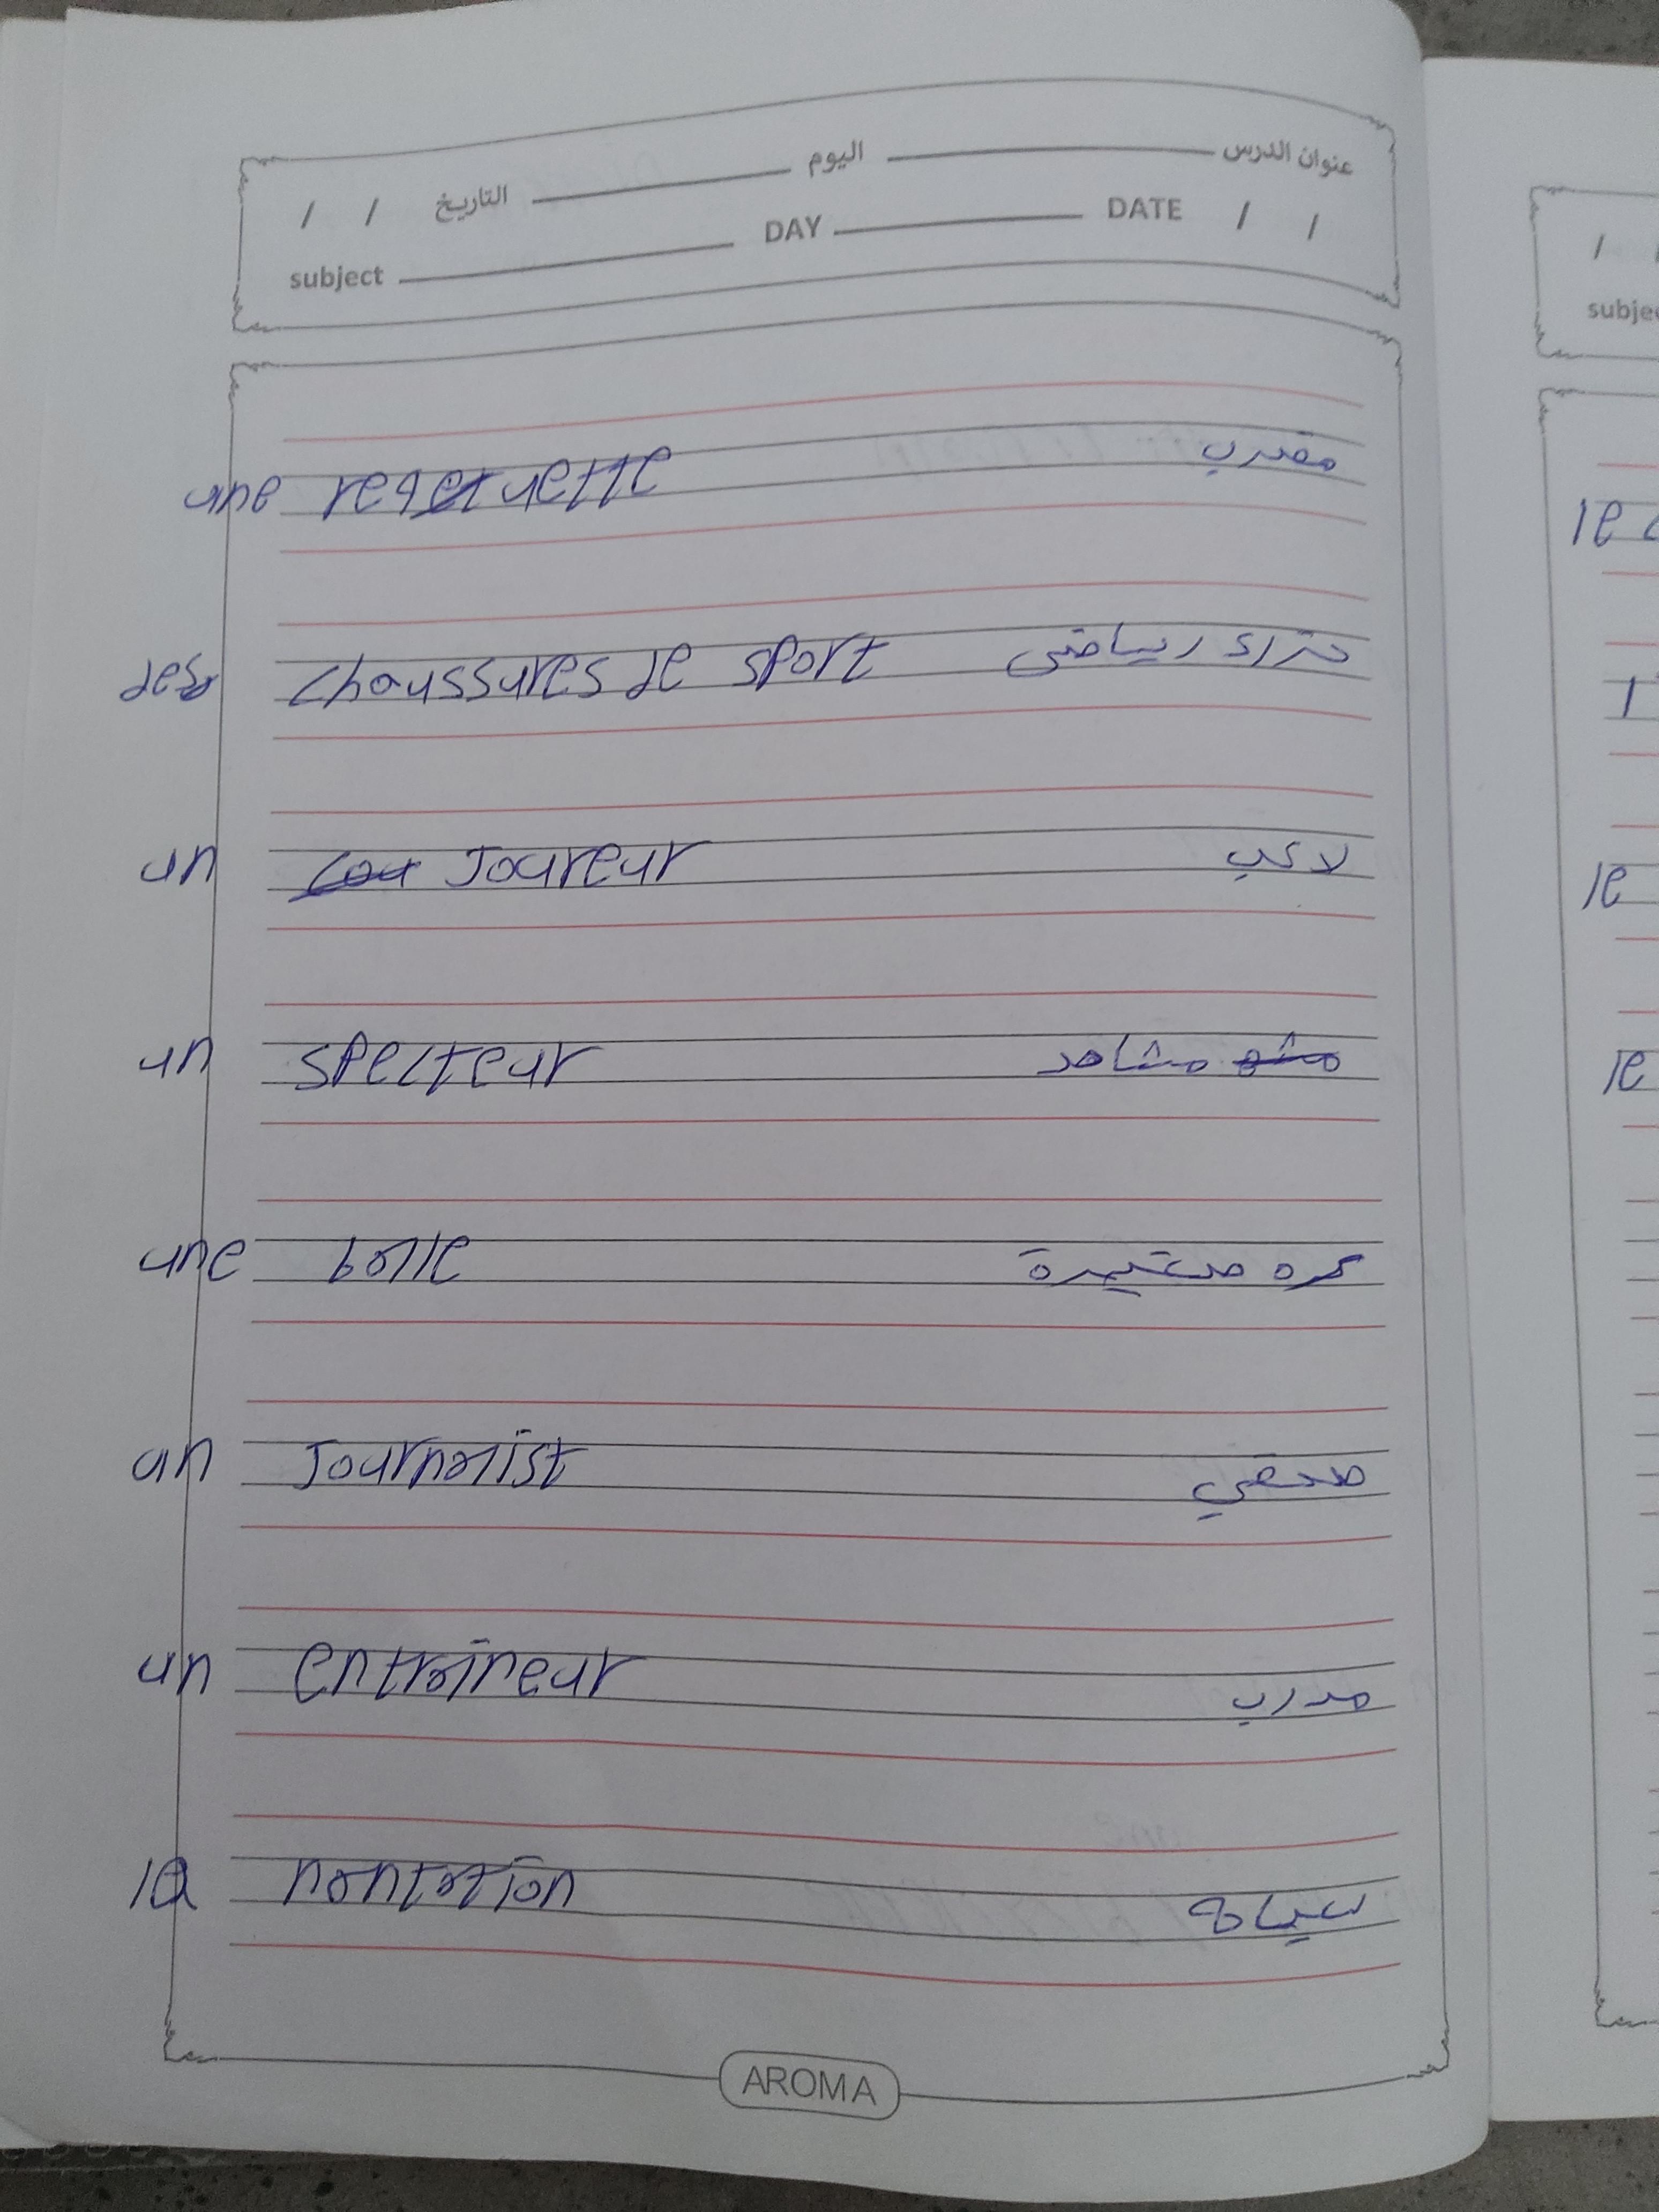 عنوان الدرس اليوم التاريخ / /
subject DAY DATE / /
une requette مضرب
des chaussures de sport حزاء رياضى
un Joureur لاعب
un specteur مشاهد
une balle كره صغيرة
un Journalist صحفي
un entraîneur مدرب
la nantation سباحة
AROMA
/
subje
le
l'
le
le